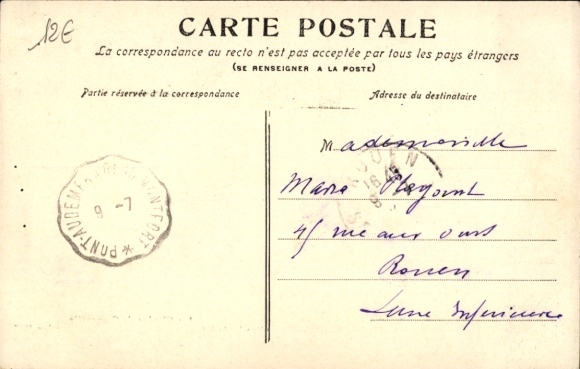 12€
CARTE POSTALE
La correspondance au recto n'est pas acceptée par tous les pays étrangers
(SE RENSEIGNER A LA POSTE)
Partie réservée à la correspondance
Adresse du destinataire
Mademoiselle
Maria
45 rue aux Ours
Rouen
Seine Inférieure
ROUEN
PONT-AUDEMER MONTFORT *
9 -7